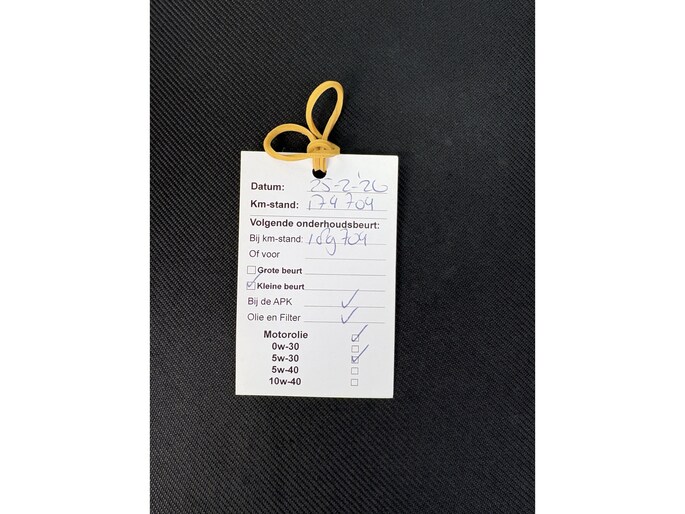 Datum: 25-2-'26
Km-stand: 174 704
Volgende onderhoudsbeurt:
Bij km-stand: 189 704
Of voor
Grote beurt
Kleine beurt
Bij de APK
Olie en Filter
Motorolie
0w-30
5w-30
5w-40
10w-40